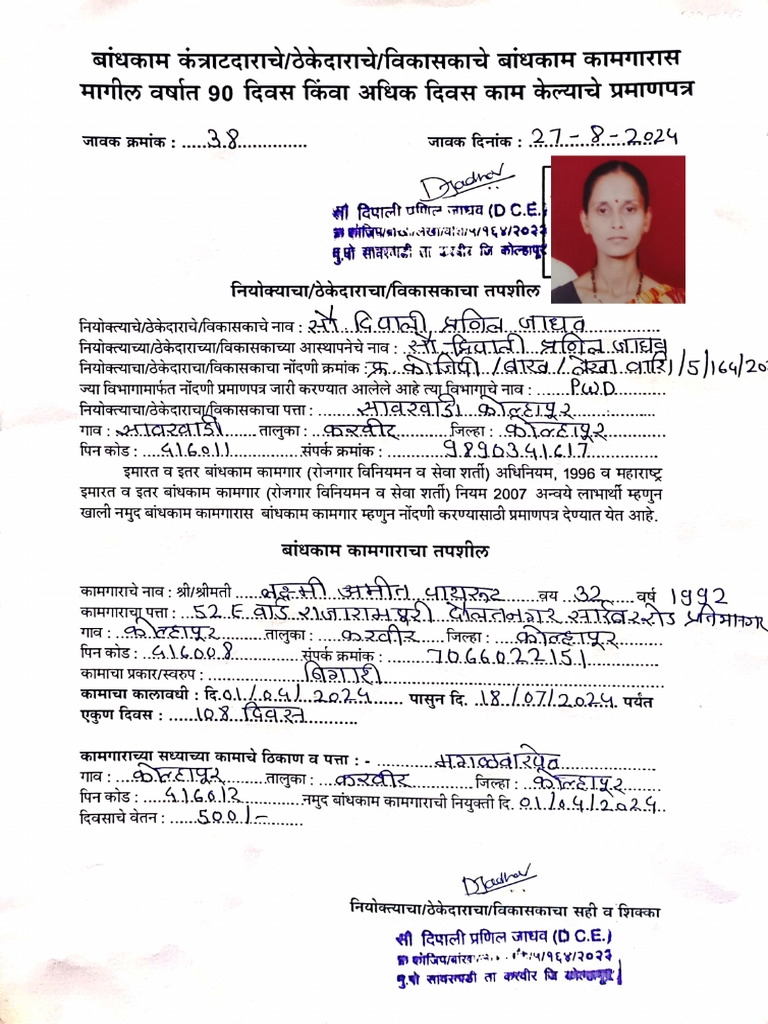 बांधकाम कंत्राटदाराचे/ठेकेदाराचे/विकासकाचे बांधकाम कामगारास
मागील वर्षात 90 दिवस किंवा अधिक दिवस काम केल्याचे प्रमाणपत्र
जावक क्रमांक : .....38.............. जावक दिनांक : 27-8-2024
Djadhav
सौ दिपाली प्रणिल जाधव (D C.E.)
मु.पो सावरवाडी ता करवीर जि कोल्हापूर
नियोक्याचा/ठेकेदाराचा/विकासकाचा तपशील
नियोक्त्याचे/ठेकेदाराचे/विकासकाचे नाव : सौ. दिपाली प्रणिल जाधव
नियोक्त्याच्या/ठेकेदाराच्या/विकासकाच्या आस्थापनेचे नाव : सौ. दिपाली प्रणिल जाधव
नियोक्त्याचा/ठेकेदाराचा/विकासकाचा नोंदणी क्रमांक : क्र. को जिपी /बांख /लेखा वारि/5/164/20
ज्या विभागामार्फत नोंदणी प्रमाणपत्र जारी करण्यात आलेले आहे त्या विभागाचे नाव : PWD
नियोक्त्याचा/ठेकेदाराचा/विकासकाचा पत्ता : सावरवाडी कोल्हापूर
गाव : सावरवाडी तालुका : करवीर जिल्हा : कोल्हापूर
पिन कोड : 416011 संपर्क क्रमांक : 9890341617
इमारत व इतर बांधकाम कामगार (रोजगार विनियमन व सेवा शर्ती) अधिनियम, 1996 व महाराष्ट्र
इमारत व इतर बांधकाम कामगार (रोजगार विनियमन व सेवा शर्ती) नियम 2007 अन्वये लाभार्थी म्हणुन
खाली नमुद बांधकाम कामगारास बांधकाम कामगार म्हणुन नोंदणी करण्यासाठी प्रमाणपत्र देण्यात येत आहे.
बांधकाम कामगाराचा तपशील
कामगाराचे नाव : श्री/श्रीमती लक्ष्मी अमीत पाथरूट वय 32 वर्ष 1992
कामगाराचा पत्ता : 52 E वार्ड राजारामपूरी दौलतनगर सार्वररोड प्रतिभानगर
गाव : कोल्हापूर तालुका : करवीर जिल्हा : कोल्हापूर
पिन कोड : 416008 संपर्क क्रमांक : 7066022151
कामाचा प्रकार/स्वरुप : बिगारी
कामाचा कालावधी : दि.01/04/2024 पासुन दि. 18/07/2024 पर्यंत
एकुण दिवस : 108 दिवस
कामगाराच्या सध्याच्या कामाचे ठिकाण व पत्ता : - मंगळवारपेठ
गाव : कोल्हापूर तालुका : करवीर जिल्हा : कोल्हापूर
पिन कोड : 416012 नमुद बांधकाम कामगाराची नियुक्ती दि. 01/04/2024
दिवसाचे वेतन : 500/-
Djadhav
नियोक्त्याचा/ठेकेदाराचा/विकासकाचा सही व शिक्का
सौ दिपाली प्रणिल जाधव (D C.E.)
मु.पो सावरवाडी ता करवीर जि कोल्हापूर